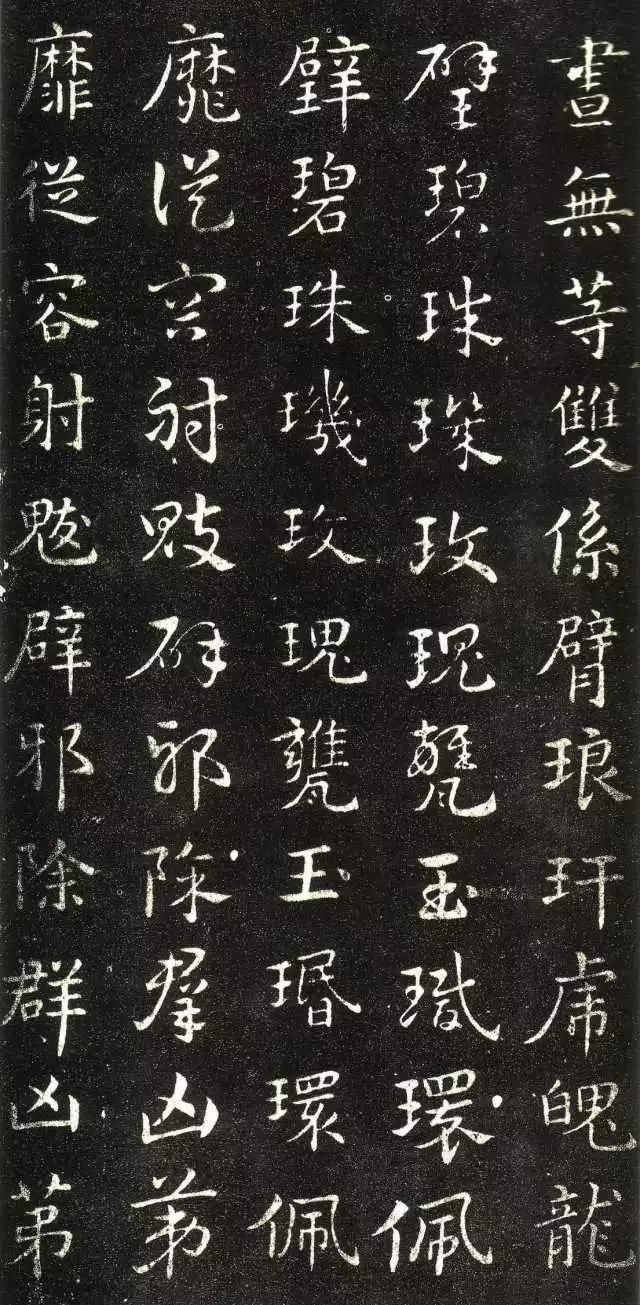 畫無等雙係臂琅玕虎魄龍
璧碧珠璣玫瑰甕玉瑉環佩
璧碧珠璣玫瑰甕玉瑉環佩
靡從容射鬾辟邪除羣凶第
靡從容射鬾辟邪除群凶第